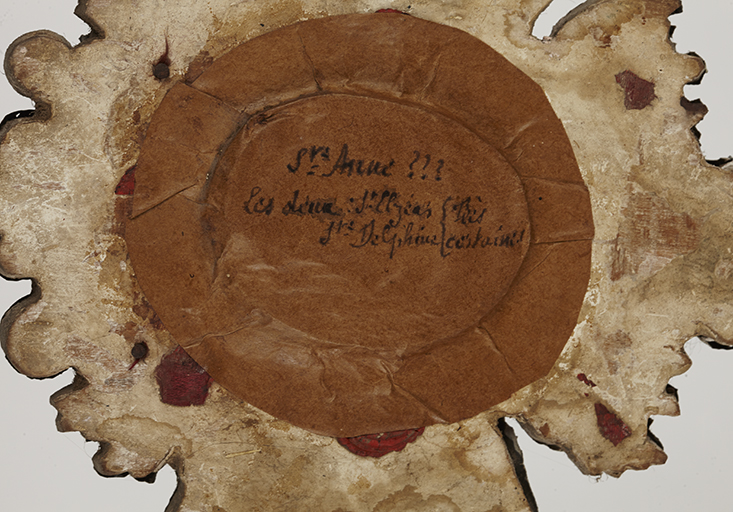 Ste Anne ???
Les deux : St Elzéar { très
Ste Delphine { certaines